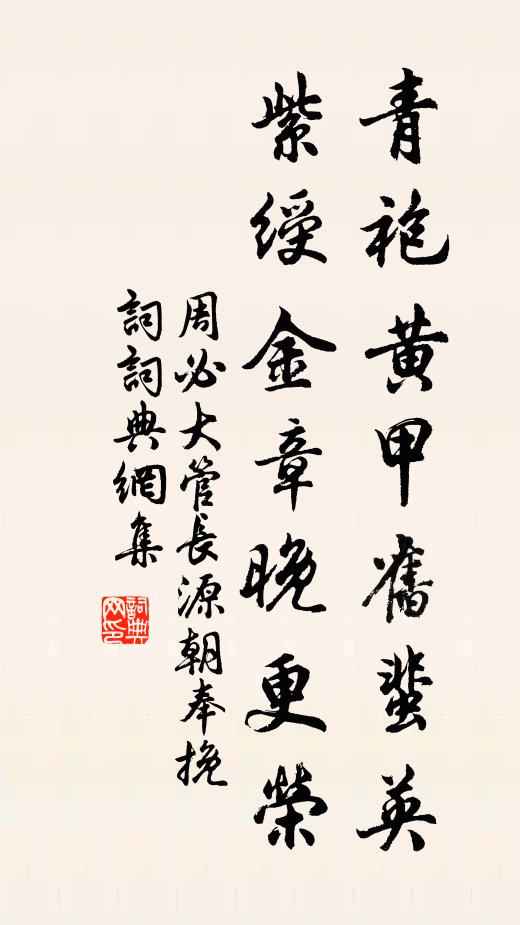 青袍黃甲舊蜚英
紫綬金章晚更榮
周必大管長源朝奉挽
詞詞典網集
詞典網印